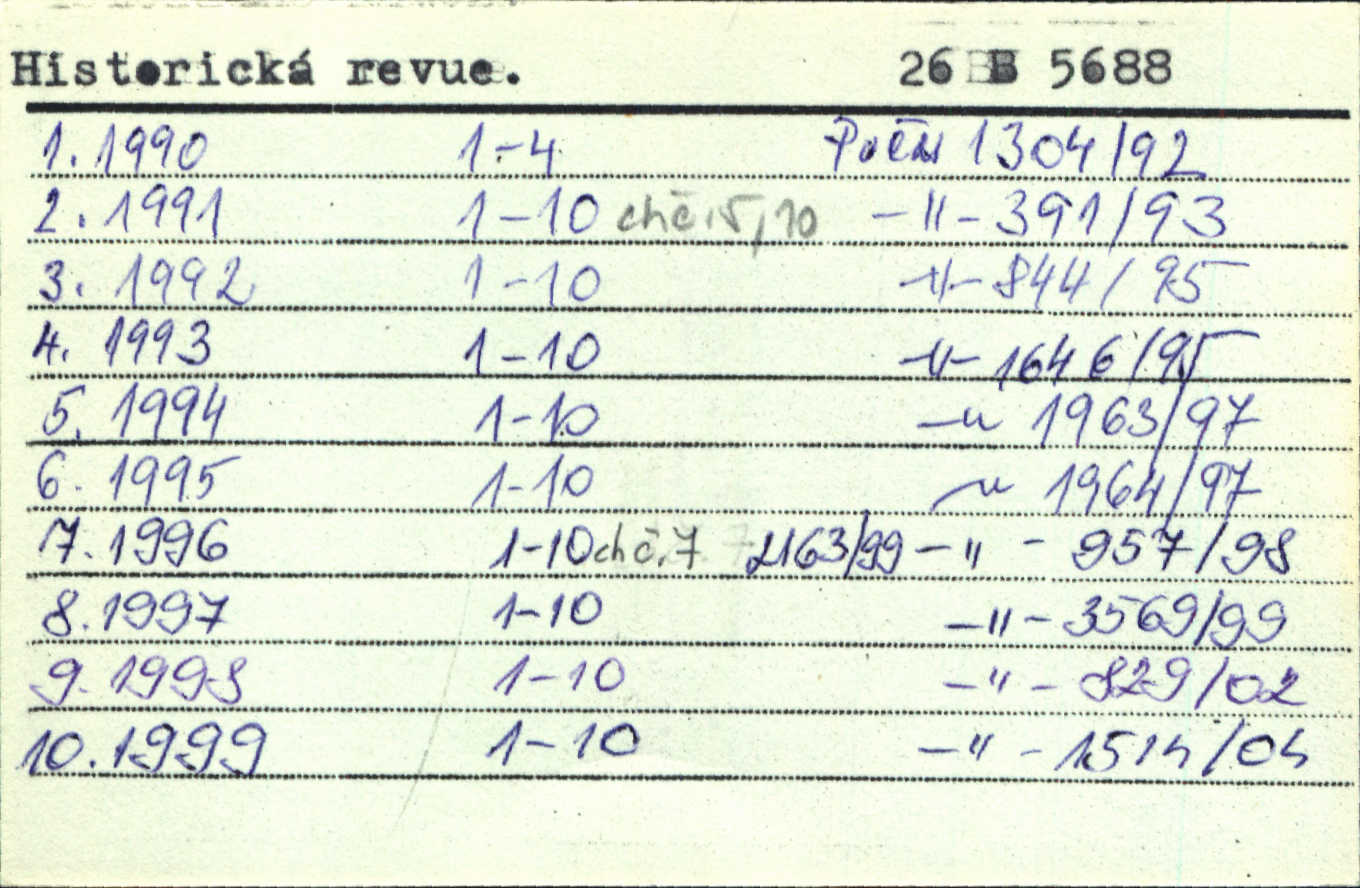 Historická revue. 26 B 5688
1. 1990 1-4 1304/92
2. 1991 1-10 chč. 5, 10 -"- 391/93
3. 1992 1-10 -"- 844/95
4. 1993 1-10 -"- 1646/95
5. 1994 1-10 -" 1963/97
6. 1995 1-10 -" 1964/97
7. 1996 1-10 chč. 7 2163/99 -"- 957/98
8. 1997 1-10 -"- 3569/99
9. 1998 1-10 -"- 829/02
10. 1999 1-10 -"- 1514/04